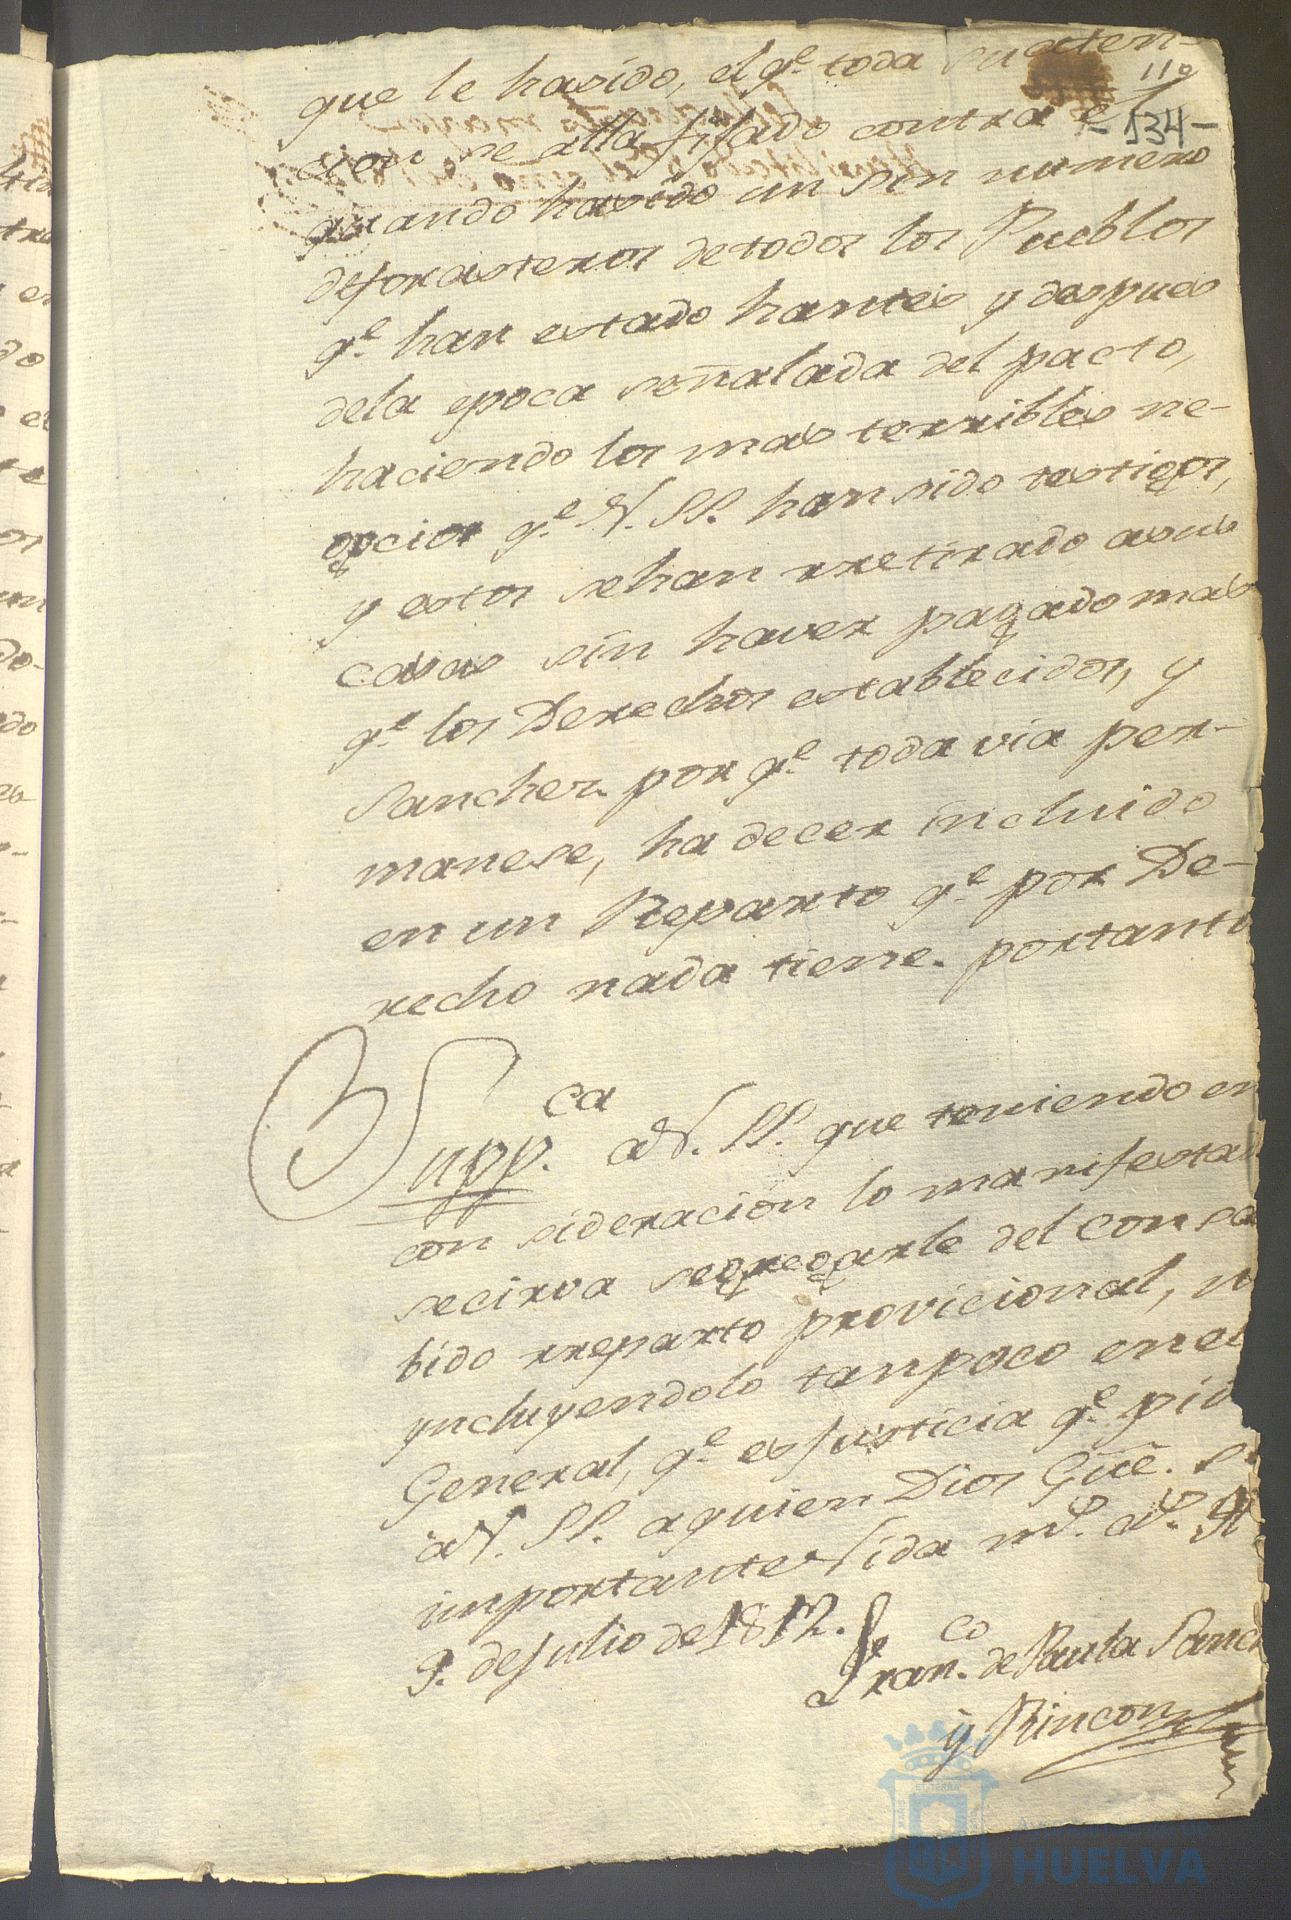 que le hasido, el q.e toda su aten-
110
cion se alla fijado contra el
- 134 -
quando havido un sin numero
deforasteros detodos los Pueblos
q.e han estado hantes y despues
dela epoca señalada del pacto,
haciendo los mas terribles ne-
gocios q.e V. SS. han sido testigos,
y estos sehan rretirado asus
casas sin haver pagado mas
q.e los Derechos establecidos, y
Sanchez por q.e toda via per-
manese, ha decer incluido
en un Reparto q.e por De-
recho nada tiene. portanto
Supp.ca aV. SS. que teniendo en
con sideracion lo manifestad
secirva segregarle del consa
bido rreparto provicional, n
yncluyendolo tanpoco en el
General, q.e es Justicia q.e pid
aV. SS. aquien Dios Gūe. s
importante Vida m.s a.s
9. deJulio de 1812.
Fran.co de Paula Sanch
y Rincon
HUELVA